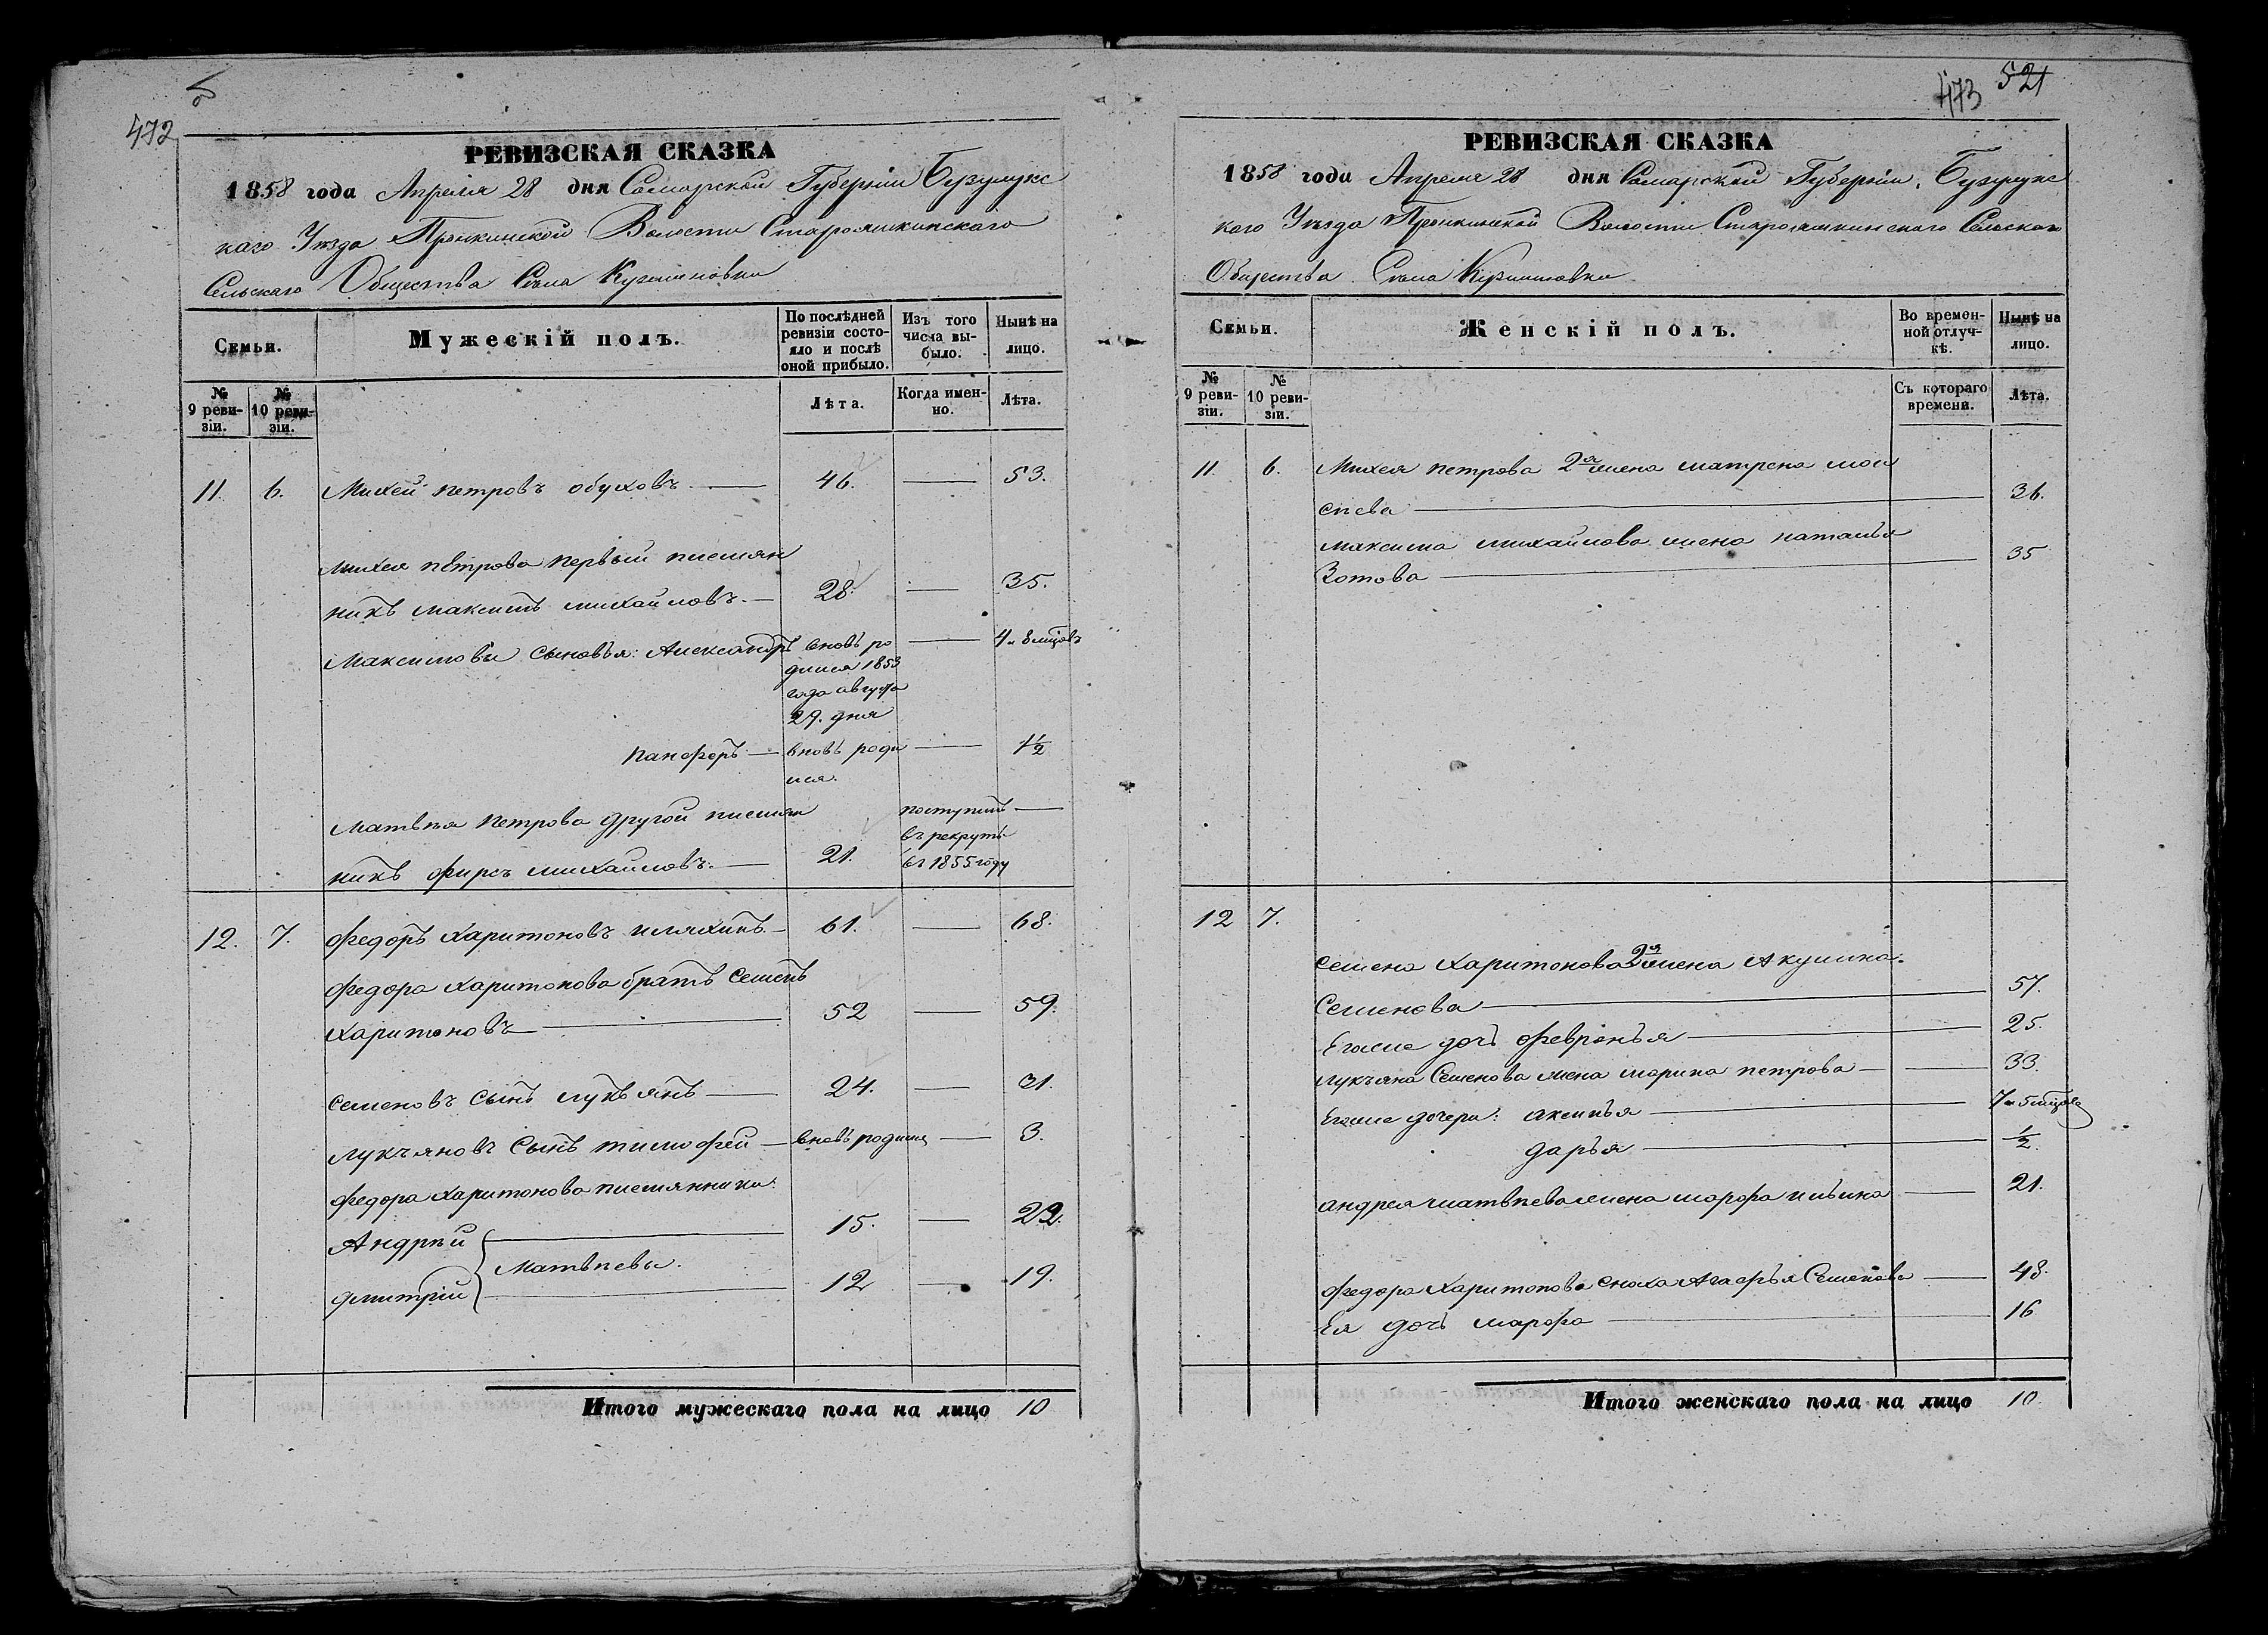 472
РЕВИЗСКАЯ СКАЗКА
1858 года Апреля 28 дня Самарской Губерніи Бузулукс
каго Уезда Пронкинской Волости Старояшкинского
Сельскаго Общества Села
Семьи.
Мужескій полъ.
По послѣдней
ревизіи состо-
яло и послѣ
оной прибыло.
Изъ того
числа вы-
было.
Нынѣ на
лицо.
№
9 реви-
зіи.
№
10 реви-
зіи.
Лѣта.
Когда имен-
но.
Лѣта.
11. 6. Михей Петровъ Обуховъ. — 46. — 53.
Михея Петрова первый племян
никъ Максимъ Михайловъ. — 28. — 35.
Максимовы сыновья: Александръ вновь ро — 4 и 8 мцовъ
дился 1853
года августа
29. дня
Панферъ — вновь роди — 1½
лся.
Матвея Петрова другой племян
никъ Фирсъ Михайловъ. — 21.
поступилъ —
въ рекруты
въ 1855 году
12. 7. Федоръ Харитоновъ — 61. — 68.
Федора Харитонова братъ Семенъ
Харитоновъ — 52 — 59.
Семеновъ сынъ Лукьянъ — 24. — 31.
Лукъяновъ сынъ Тимофей — вновь родился — 3.
Федора Харитонова племянники:
Андрей — 15. — 22.
Матвеевы.
Дмитрій — 12 — 19.
Итого мужескаго пола на лицо 10
473 521
РЕВИЗСКАЯ СКАЗКА
1858 года Апреля 28 дня Самарской Губерніи, Бузулукс
кого Уезда Пронкинской Волости Старояшкинского Сельского
Общества Села
Семьи.
Женскій полъ.
Во времен-
ной отлуч-
кѣ.
Нынѣ на
лицо.
№
9 реви-
зіи.
№
10 реви-
зіи.
Съ котораго
времени.
Лѣта.
11. 6. Михея Петрова 2я жена Матрена Мои
сеева — 36.
Максима Михайлова жена Наталья
Зотова — 35
12 7.
Семена Харитонова 2я жена Акулина
Семенова — 57.
Егоже дочь Февронья — 25.
Лукъяна Семенова жена Марина Петрова — 33.
Егоже дочери: Аксинья — 7 и 5 мцовъ
Дарья — ½.
Андрея Матвеева жена Марфа Ильина — 21.
Федора Харитонова сноха Агафья Семенова — 48.
Ея дочь Марфа — 16
Итого женскаго пола на лицо 10.